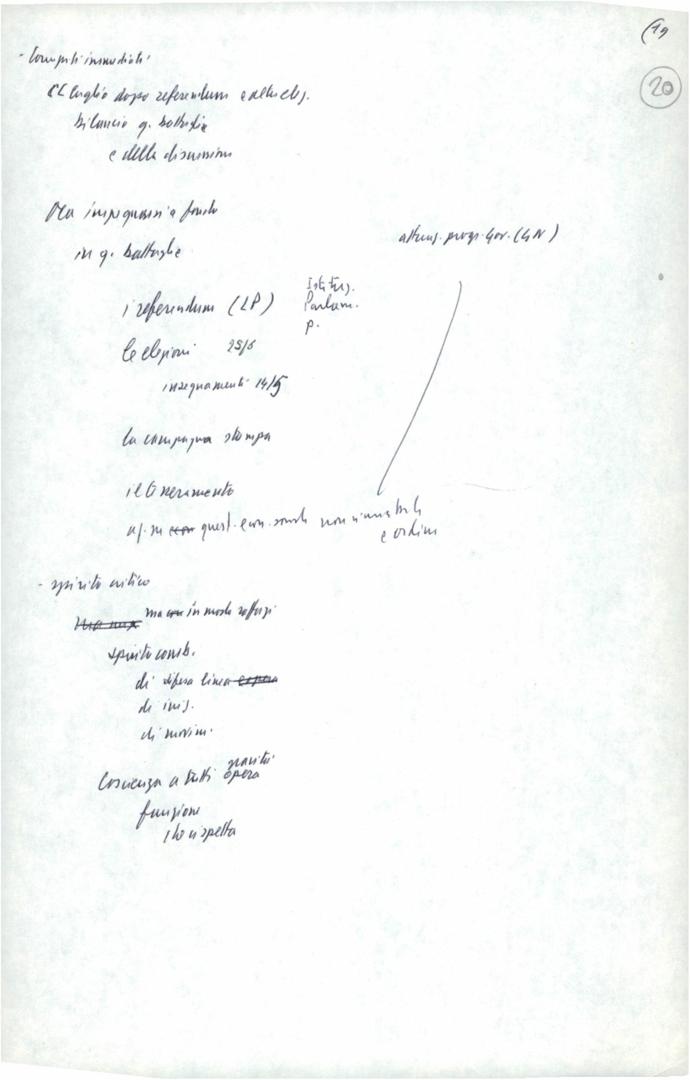 (19
20
- Compiti immediati
CC luglio dopo referendum e altre elez.
bilancio q. battaglie
e della discussione
Ora impegnarsi a fondo
in q. battaglie
attuaz. progr. gov. (GN)
i referendum (LP) Istituz.
Parlam.
p.
le elezioni 25/6
insegnamenti 14/5
la campagna stampa
il tesseramento
quest. econ. sociali non rinviabili
e ordine
- spirito critico
ma in modo
spirito comb.
di difesa linea
di iniz.
di movim.
Coscienza a tutti gravità
opera
funzione
che ci spetta